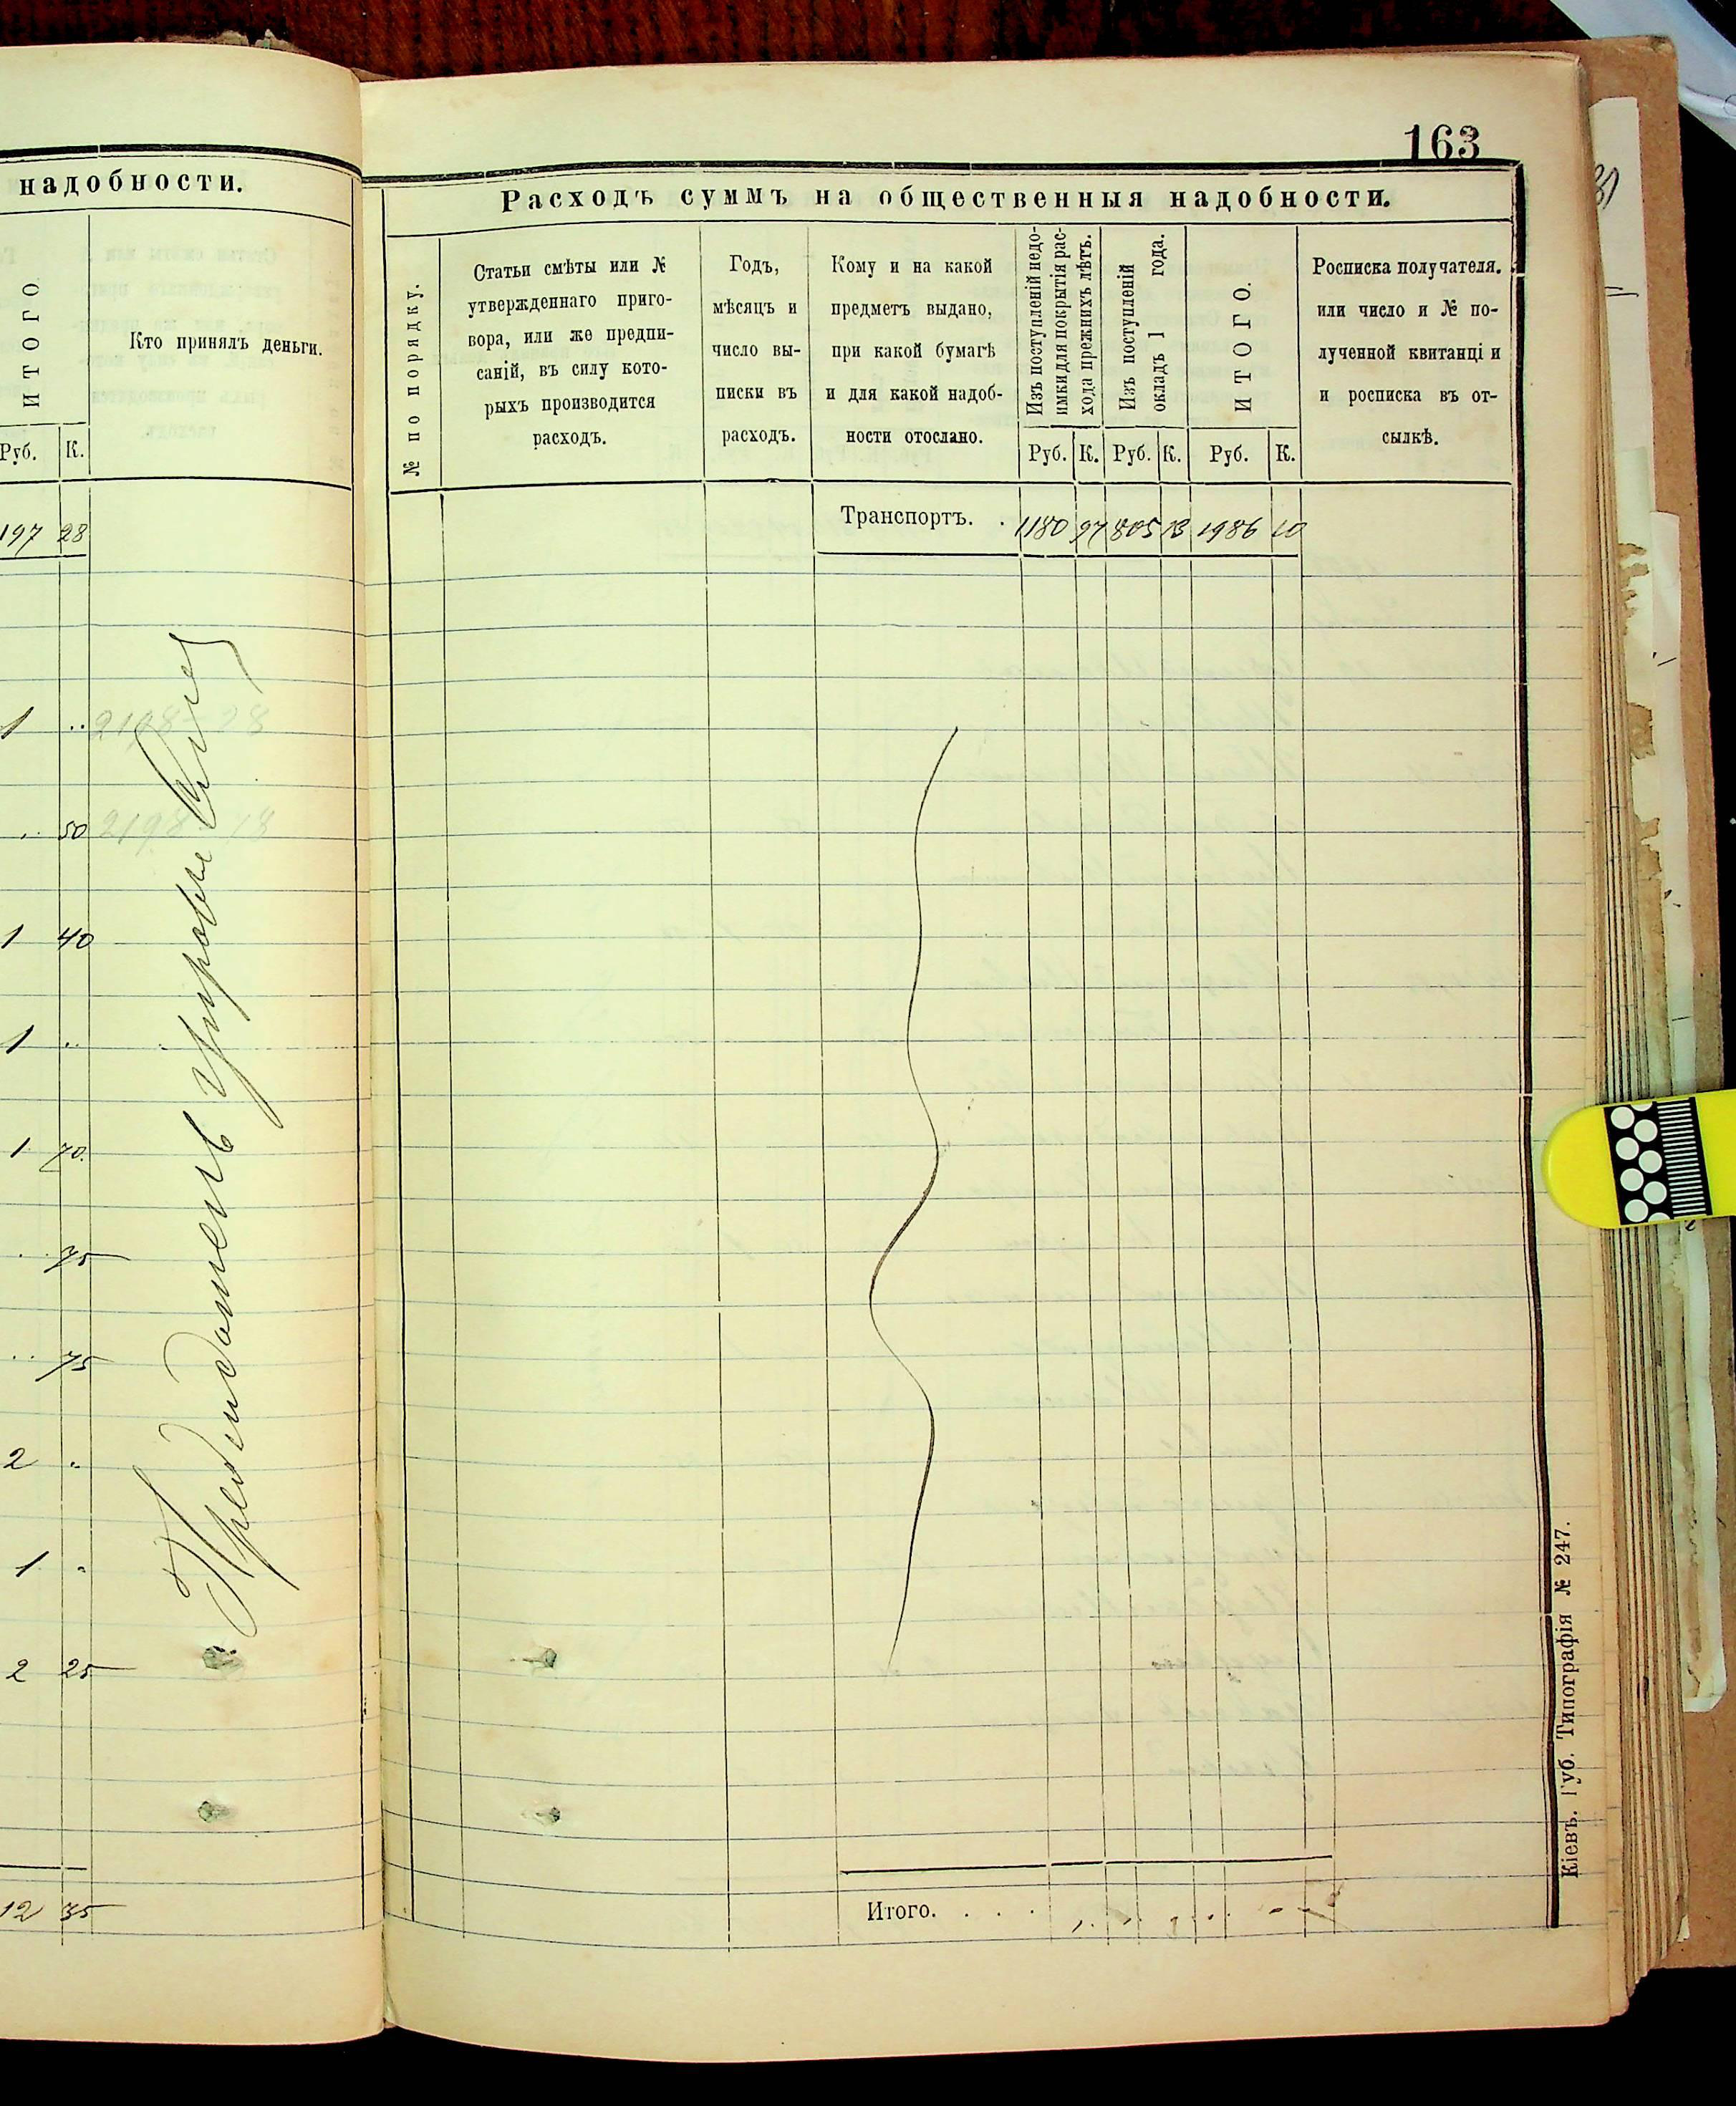 надобности.
ИТОГО
Кто принялъ деньги.
Руб. К.
197 28
1 ..
2198-28
.. 50
2198
1 40
1 ..
1 70
.. 75
.. 75
2 ..
1 ..
2 25
12 35
163
Расходъ суммъ на общественныя надобности.
№ по порядку.
Статьи смѣты или №
утвержденнаго приго-
вора, или же предпи-
саній, въ силу кото-
рыхъ производится
расходъ.
Годъ,
мѣсяцъ и
число вы-
писки въ
расходъ.
Кому и на какой
предметъ выдано,
при какой бумагѣ
и для какой надоб-
ности отослано.
Изъ поступленій недо-
имки для покрытія рас-
хода прежнихъ лѣтъ.
Изъ поступленій
окладъ 1 года.
ИТОГО.
Росписка получателя.
или число и № по-
лученной квитанціи
и росписка въ от-
сылкѣ.
Руб. К. Руб. К. Руб. К.
Транспортъ. . 1180 97 805 13 1986 10
Итого. . . .
Кіевъ. Губ. Типографія № 247.